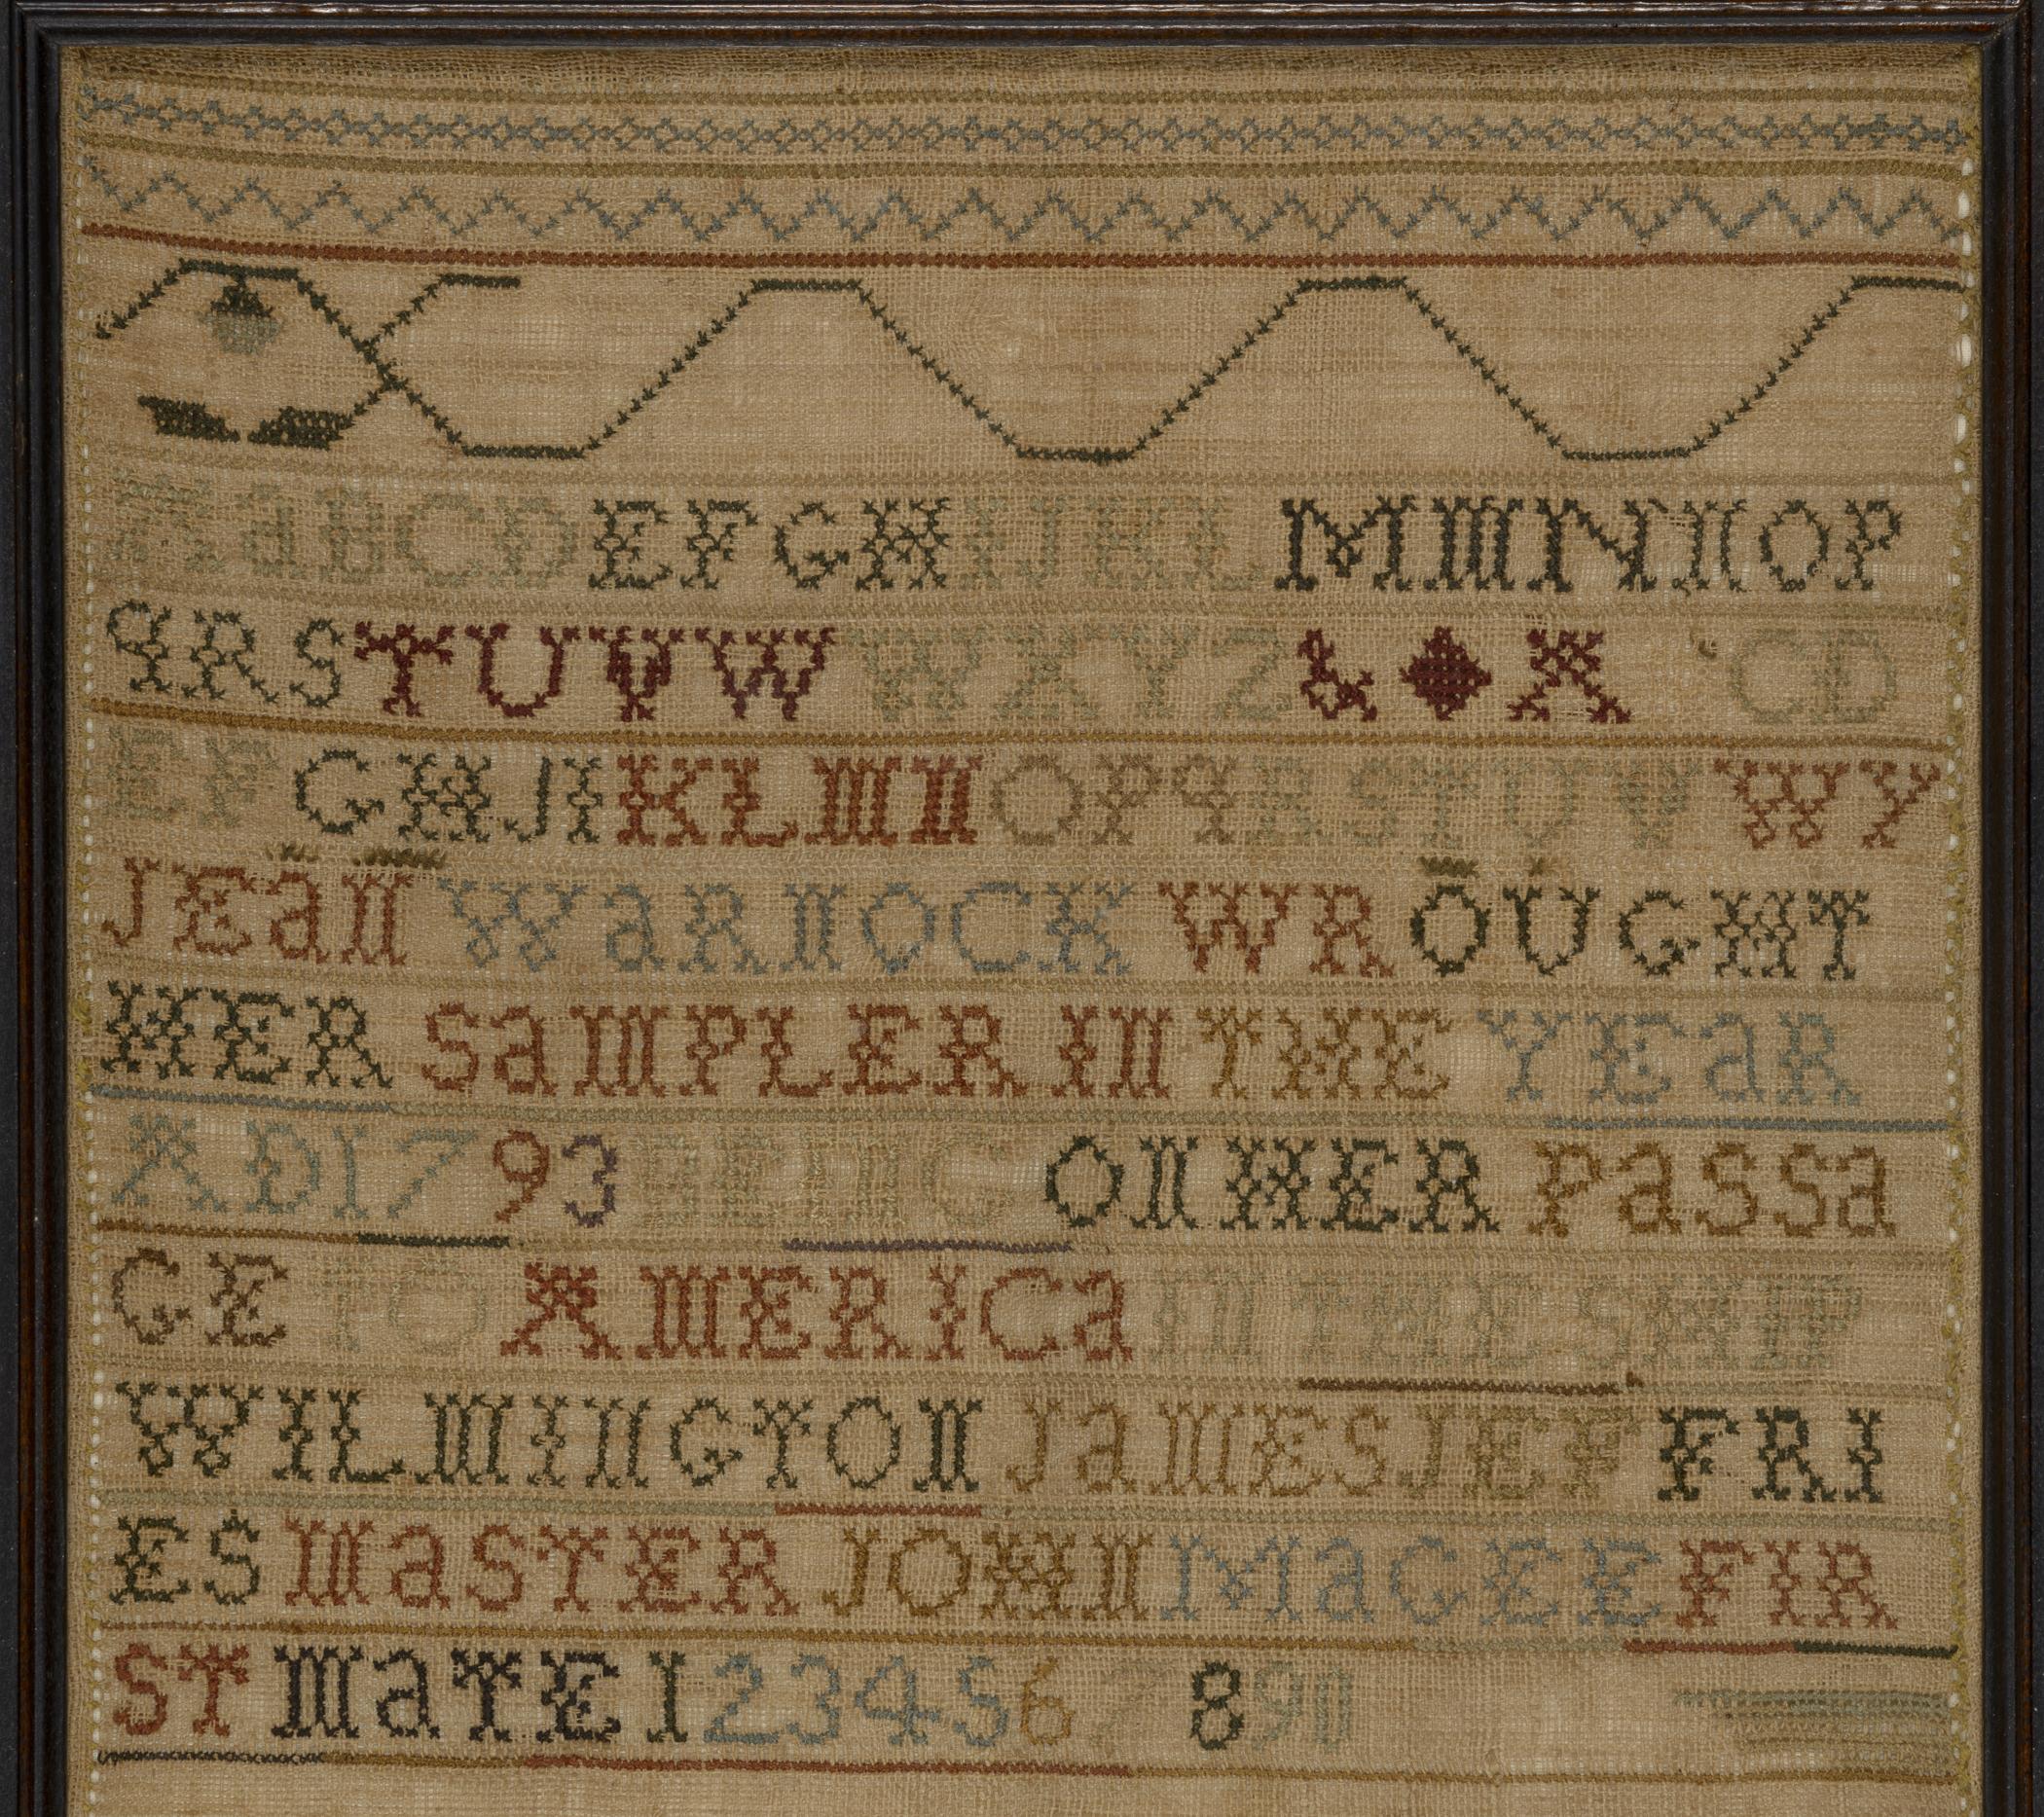 AaBCDEFGHIJKLMMNNOP
qRSTUVWWXYZ& A CD
EFGHJIKLMNOPqRSTUVWY
JEaN WaRNOCK WROUGHT
HER SaMPLER IN THE YEaR
AD1793 BEING ON HER PaSSa
GE TO AMERICa IN THE SHIP
WILMINGTON JaMES JEFFRI
ES MaSTER JOHN MaGEE FIR
ST MaTE 1234567890